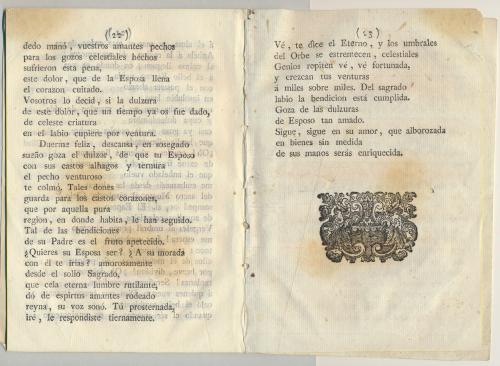 dedo manó, vuestros amantes pechos
para los gozos celestiales hechos
sufrieron ésta pena,
este dolor, que de la Esposa llena
el corazon cuitado.
Vosotros lo decid, si la dulzura
de este dolor, que un tiempo ya os fue dado,
de celeste criatura
en el labio cupiere por ventura.
Duerme feliz, descansa, en sosegado
sueño goza el dulzor, de que tu Esposo
con sus castos alhagos y ternura
el pecho venturoso
te colmó. Tales dones
guarda para los castos corazones,
que por aquella pura
region, en donde habita, le han seguido.
Tal de las bendiciones
de su Padre es el fruto apetecido.
¿Quieres su Esposa ser? ¿A su morada
con él te irias? amorosamente
desde el solio Sagrado,
que cela eterna lumbre rutilante,
dó de espiritus amantes rodeado
reyna, su voz sonó. Tú prosternada,
iré, le respondiste tiernamente.
(23)
Vé, te dice el Eterno, y los umbrales
del Orbe se estremecen, celestiales
Genios repiten vé, vé fortunada,
y crezcan tus venturas
á miles sobre miles. Del sagrado
labio la bendicion está cumplida.
Goza de las dulzuras
de Esposo tan amado.
Sigue, sigue en su amor, que alborozada
en bienes sin medida
de sus manos serás enriquecida.